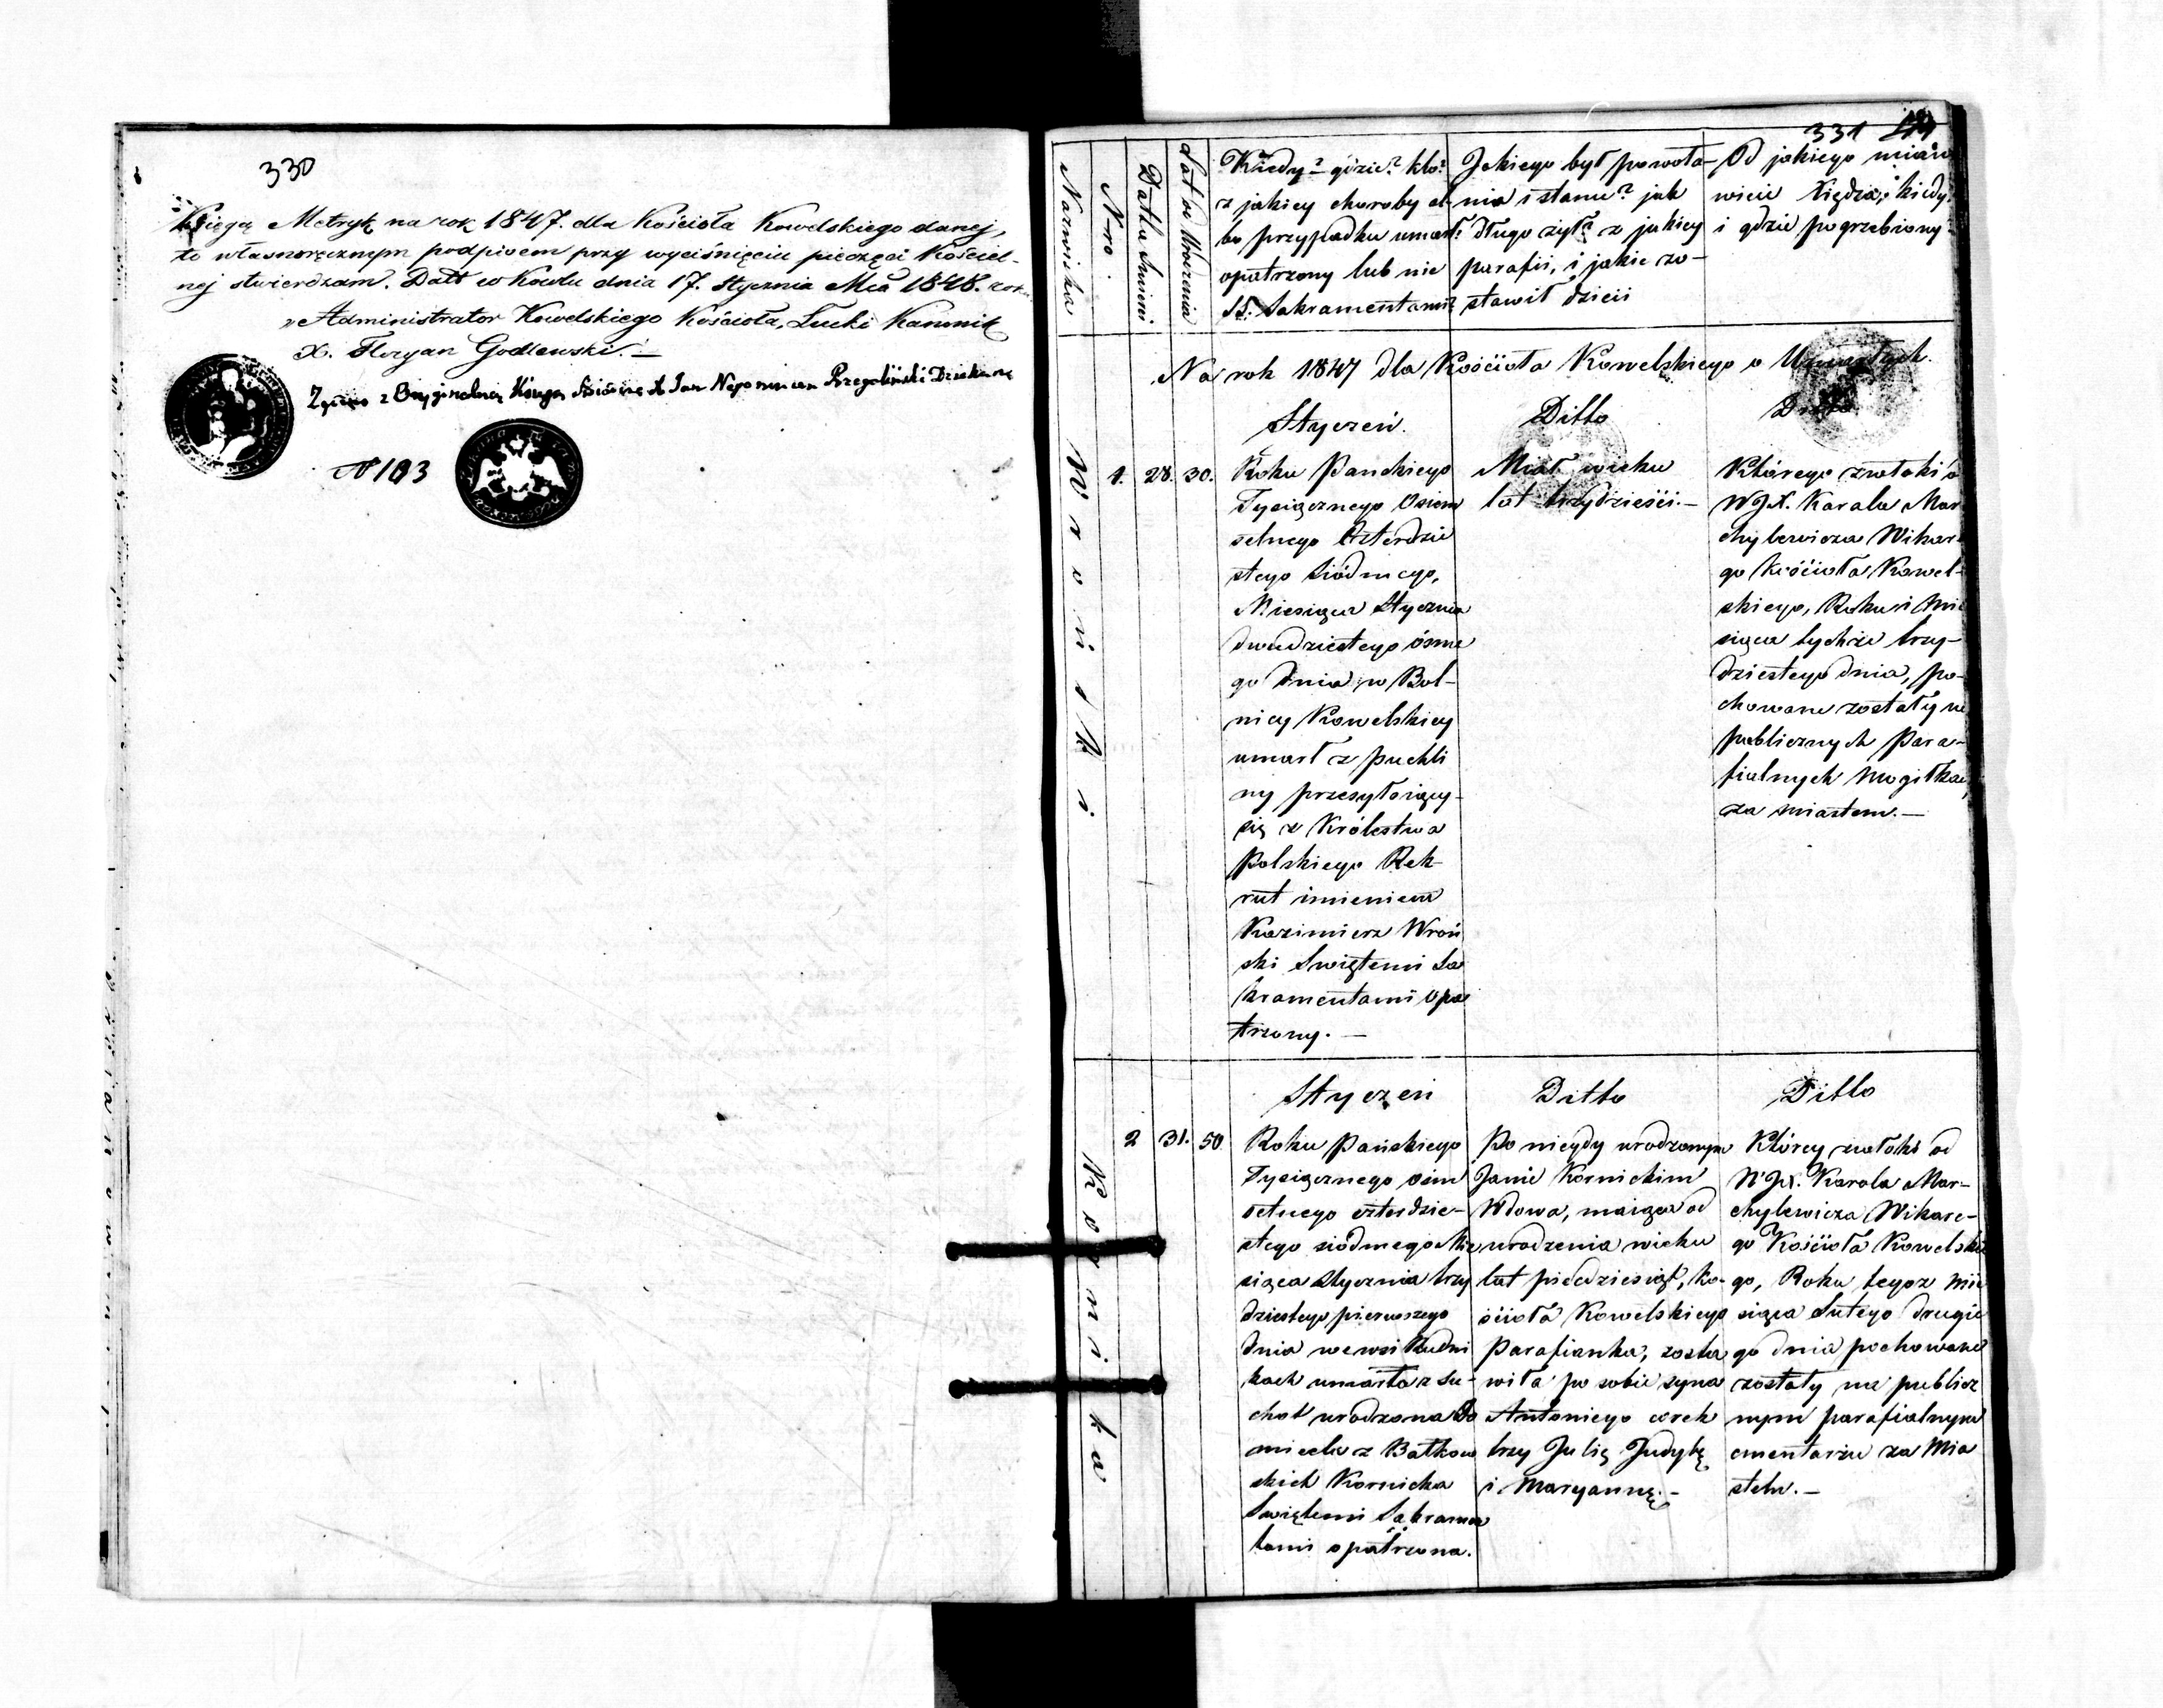 330
Księgę Metryk na rok 1847. dla Kościoła Kowelskiego danej,
to własnoręcznym podpisem przy wyciśnięciu pieczęci Kościel-
nej stwierdzam. Datt w Kowlu dnia 17. Stycznia Mca 1848. roku
Administrator Kowelskiego Kościoła, Łucki Kanonik
X. Floryan Godlewski. —
Zgodno z Oryginalną Księgą X Jan Nepomucen Przegaliński Dziekan
N 103
331
Nazwiska
N-ro.
Datta Śmierci
Lat od Urodzenia
Kiedy? gdzie? kto?
z jakiey choroby al-
bo przypadku umarł?
opatrzony lub nie
SS. Sakramentami?
Jakiego był powoła-
nia i stanu? jak
długo żył? z jakiey
parafii, i jakie zo-
stawił dzieci
Od jakiego miano
wicie Xiędza, i kiedy
i gdzie pogrzebiony?
Na rok 1847 dla Kościoła Kowelskiego o Umarłych.
Wroński
1. 28. 30.
Styczeń.
Roku Panskiego
Tysiącznego Osiem
setnego Czterdzie
stego Siódmego,
Miesiąca Stycznia
dwudziestego ósme
go dnia, w Bol-
nicy Kowelskiey
umarł z puchli
ny przesyłaiący-
się z Królestwa
Polskiego Rek-
rut imieniem
Kazimierz Wroń
ski Swiętemi Sa
kramentami opa
trzony. —
Ditto
Miał wieku
lat trzydzieści. —
Ditto
Którego zwłoki o
WJX. Karola Mar
chylewicza Wikar
go Kościoła Kowel-
skiego, Roku i Mie
siąca tychże trzy-
dziestego dnia, po-
chowane zostały na
publicznych Para-
fialnych Mogiłkac
za miastem. —
Kornicka
2 31. 50
Styczeń
Roku Pańskiego
Tysiącznego osm
setnego czterdzie-
stego siódmego Mie
siąca Stycznia trzy
dziestego pierwszego
dnia we wsi Rudni
kach umarła z Su-
chot urodzona Do
micela z Bałkow
skich Kornicka
Swiętemi Sakramen
tami opatrzona.
Ditto
Po niegdy urodzonym
Janie Kornickim
Wdowa, maiąca od
urodzenia wieku
lat piedziesiąt, Ko-
ścioła Kowelskiego
Parafianka, zosta
wiła po sobie syna
Antoniego corek
trzy Julię Judytę
i Maryannę. —
Ditto
Którey zwłoki od
WJX. Karola Mar-
chylewicza Wikare-
go Kościoła Kowelskie
go, Roku tegoz Mie
siąca Lutego drugie
go dnia pochowane
zostały na publicz
nym parafialnym
cmentarzu za Mia
stem. —